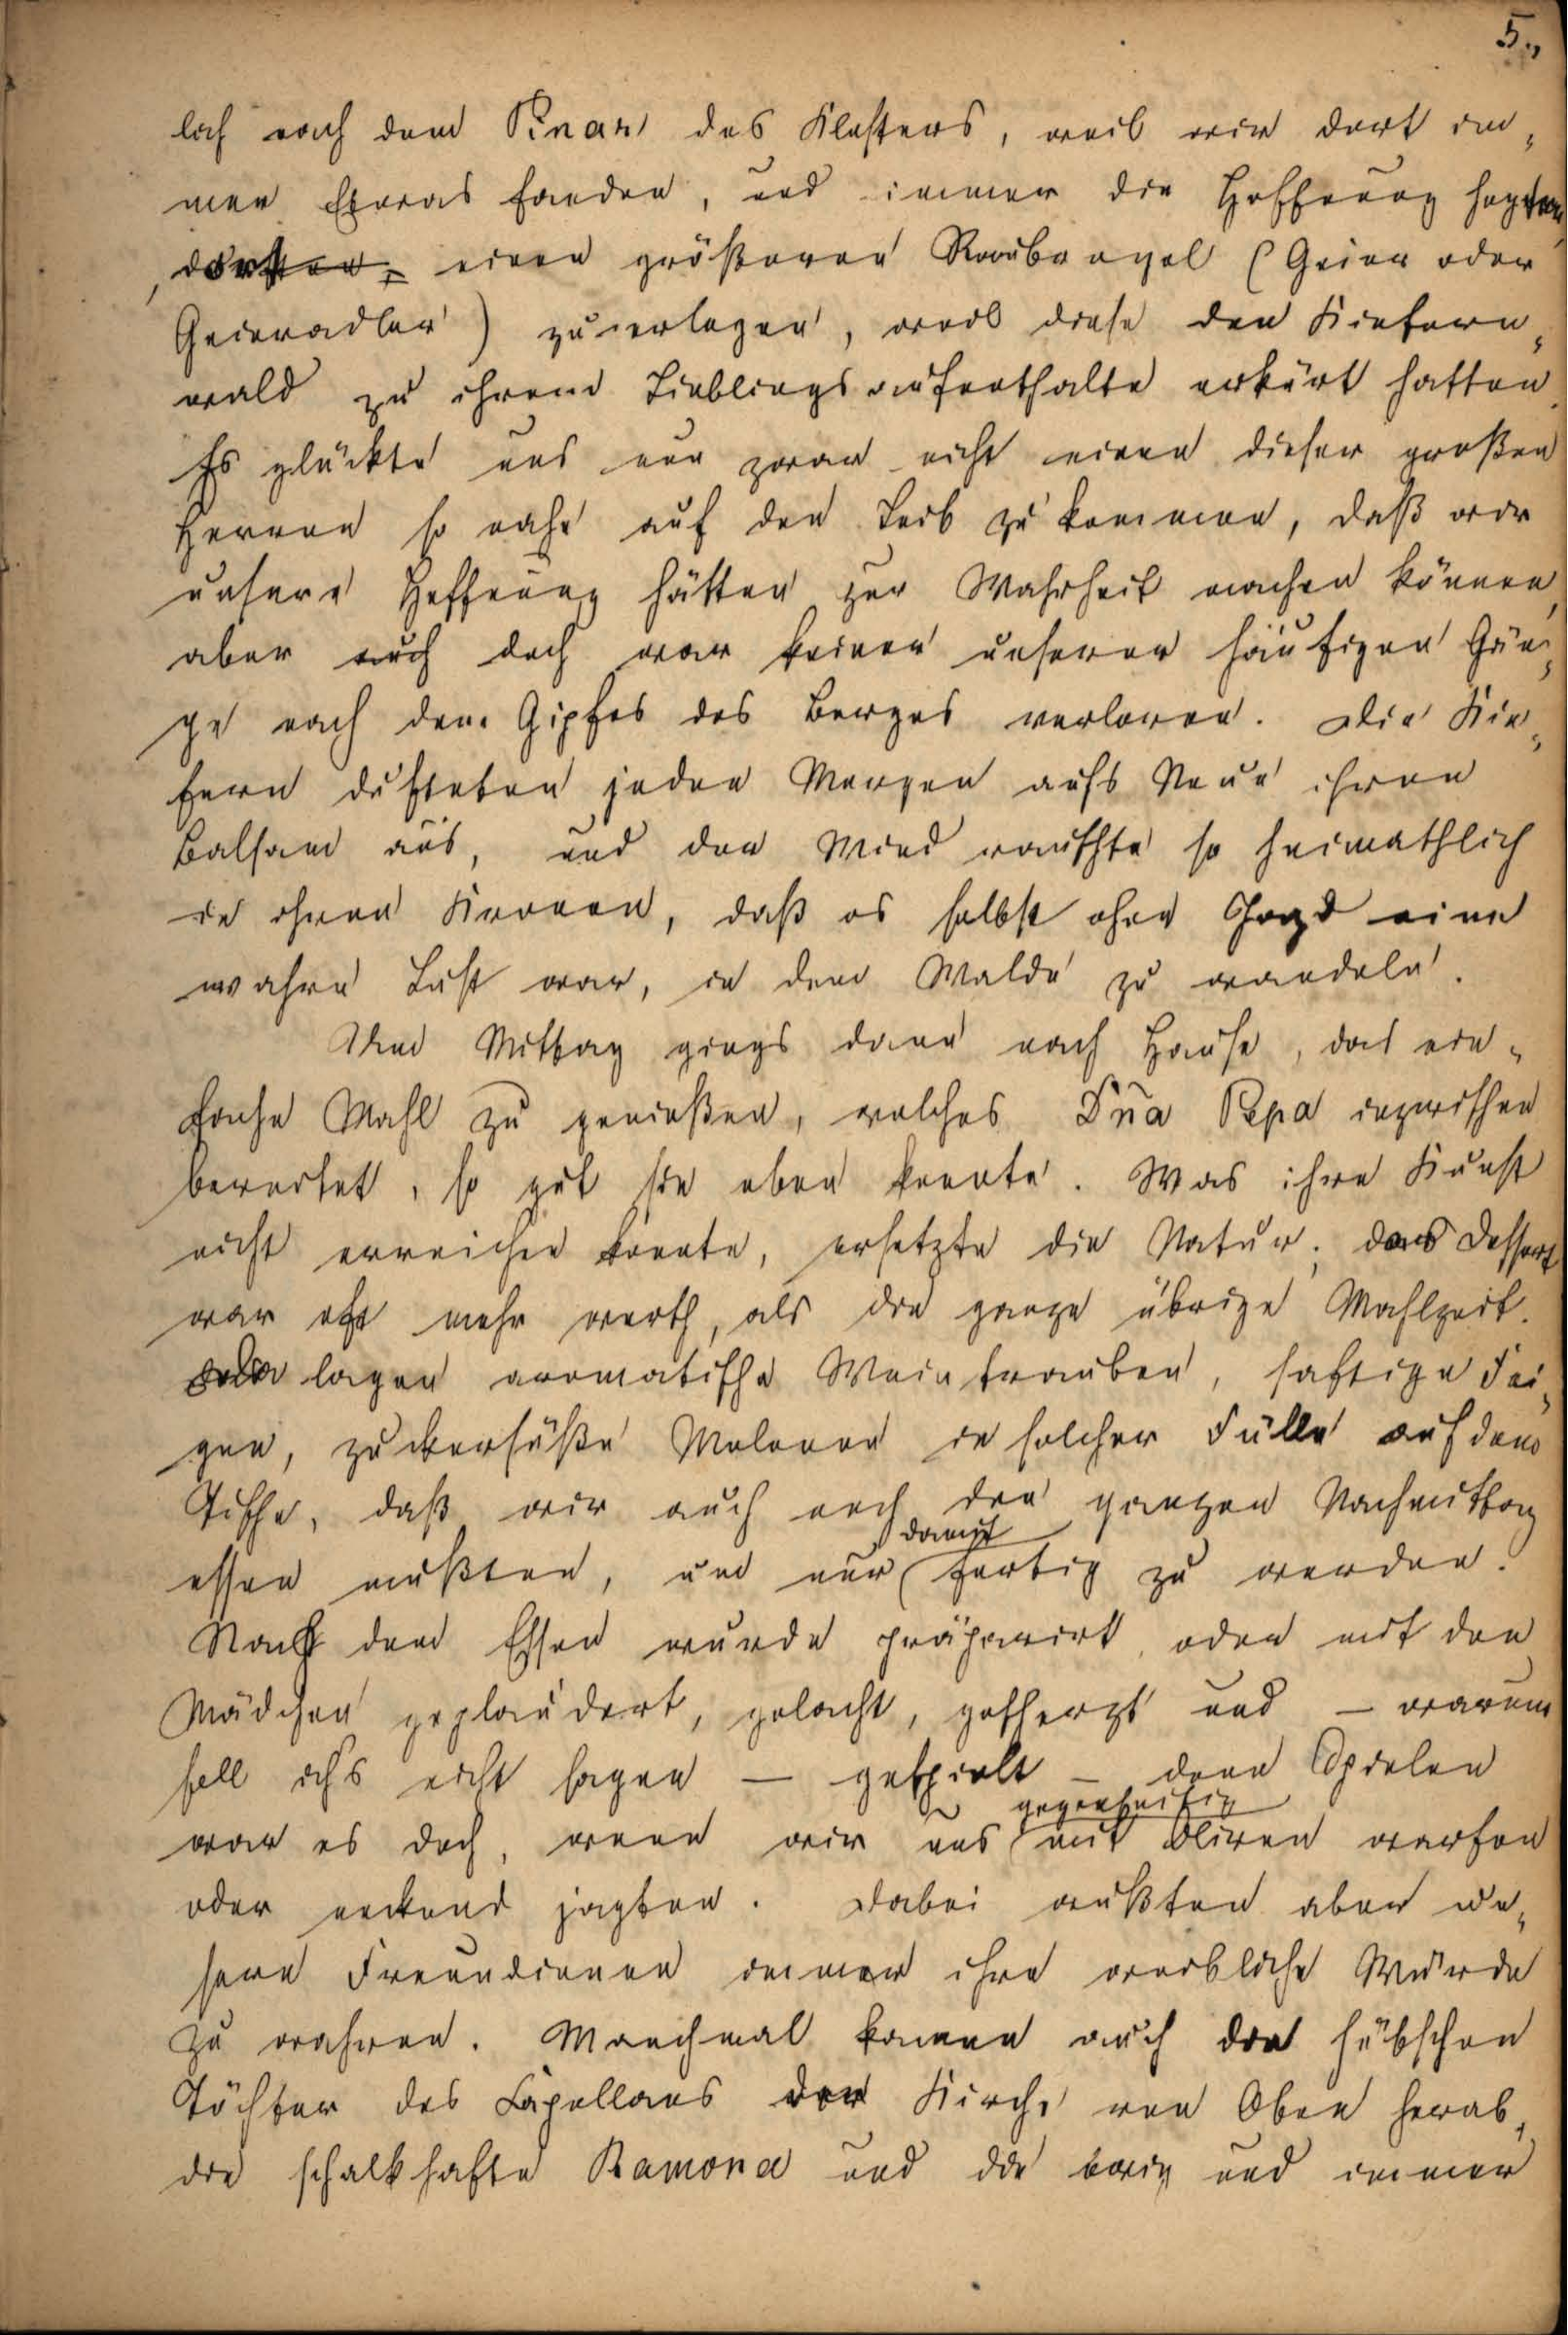 5.,
lich nach dem Pinar des Klosters, weil wir dort im„
mer Etwas fanden, und immer die Hoffnung hegten,
einen größeren Raubvogel (Geier oder
Geieradler) zu erlegen, weil diese den Kiefern„
wald zu ihrem Lieblingsaufenthalte erkürt hatten.
Es glückte uns nun zwar nicht einen dieser großen
Herren so nahe auf den Leib zu kommen, daß wir
unsere Hoffnung hätten zur Wahrheit machen können,
aber auch doch war keiner unserer häufigen Gän„
ge nach dem Gipfel des Berges verloren. Die Kie„
fern dufteten jeden Morgen aufs Neue ihren
Balsam aus, und der Wind rauschte so heimathlich
in ihren Kronen, daß es selbst ohne Jagd eine
wahre Lust war, in dem Walde zu wandeln.
Um Mittag gings dann nach Hause, das ein„
fache Mahl zu genießen, welches Dña Pepa inzwischen
bereitet, so gut sie eben konnte. Was ihre Kunst
nicht erreichen konnte, ersetzte die Natur; das Dessert
war oft mehr werth, als die ganze übrige Mahlzeit.
Da lagen aromatische Weintrauben, saftige Fei„
gen, zuckersüße Melonen in solcher Fülle auf dem
Tische, daß wir auch noch den ganzen Nachmittag
essen mußten, um nur damit fertig zu werden.
Nach dem Essen wurde präparirt oder mit den
Mädchen geplaudert, gelacht, gescherzt und — warum
soll ich's nicht sagen — gespielt — denn Spielen
war es doch, wenn wir uns gegenseitig mit Oliven warfen
oder neckend jagten. Dabei wußten aber un„
sere Freundinnen immer ihre weibliche Würde
zu wahren. Manchmal kamen auch die hübschen
Töchter des Capellans der Kirche von Oben herab,
die schalkhafte Ramona und die und immer